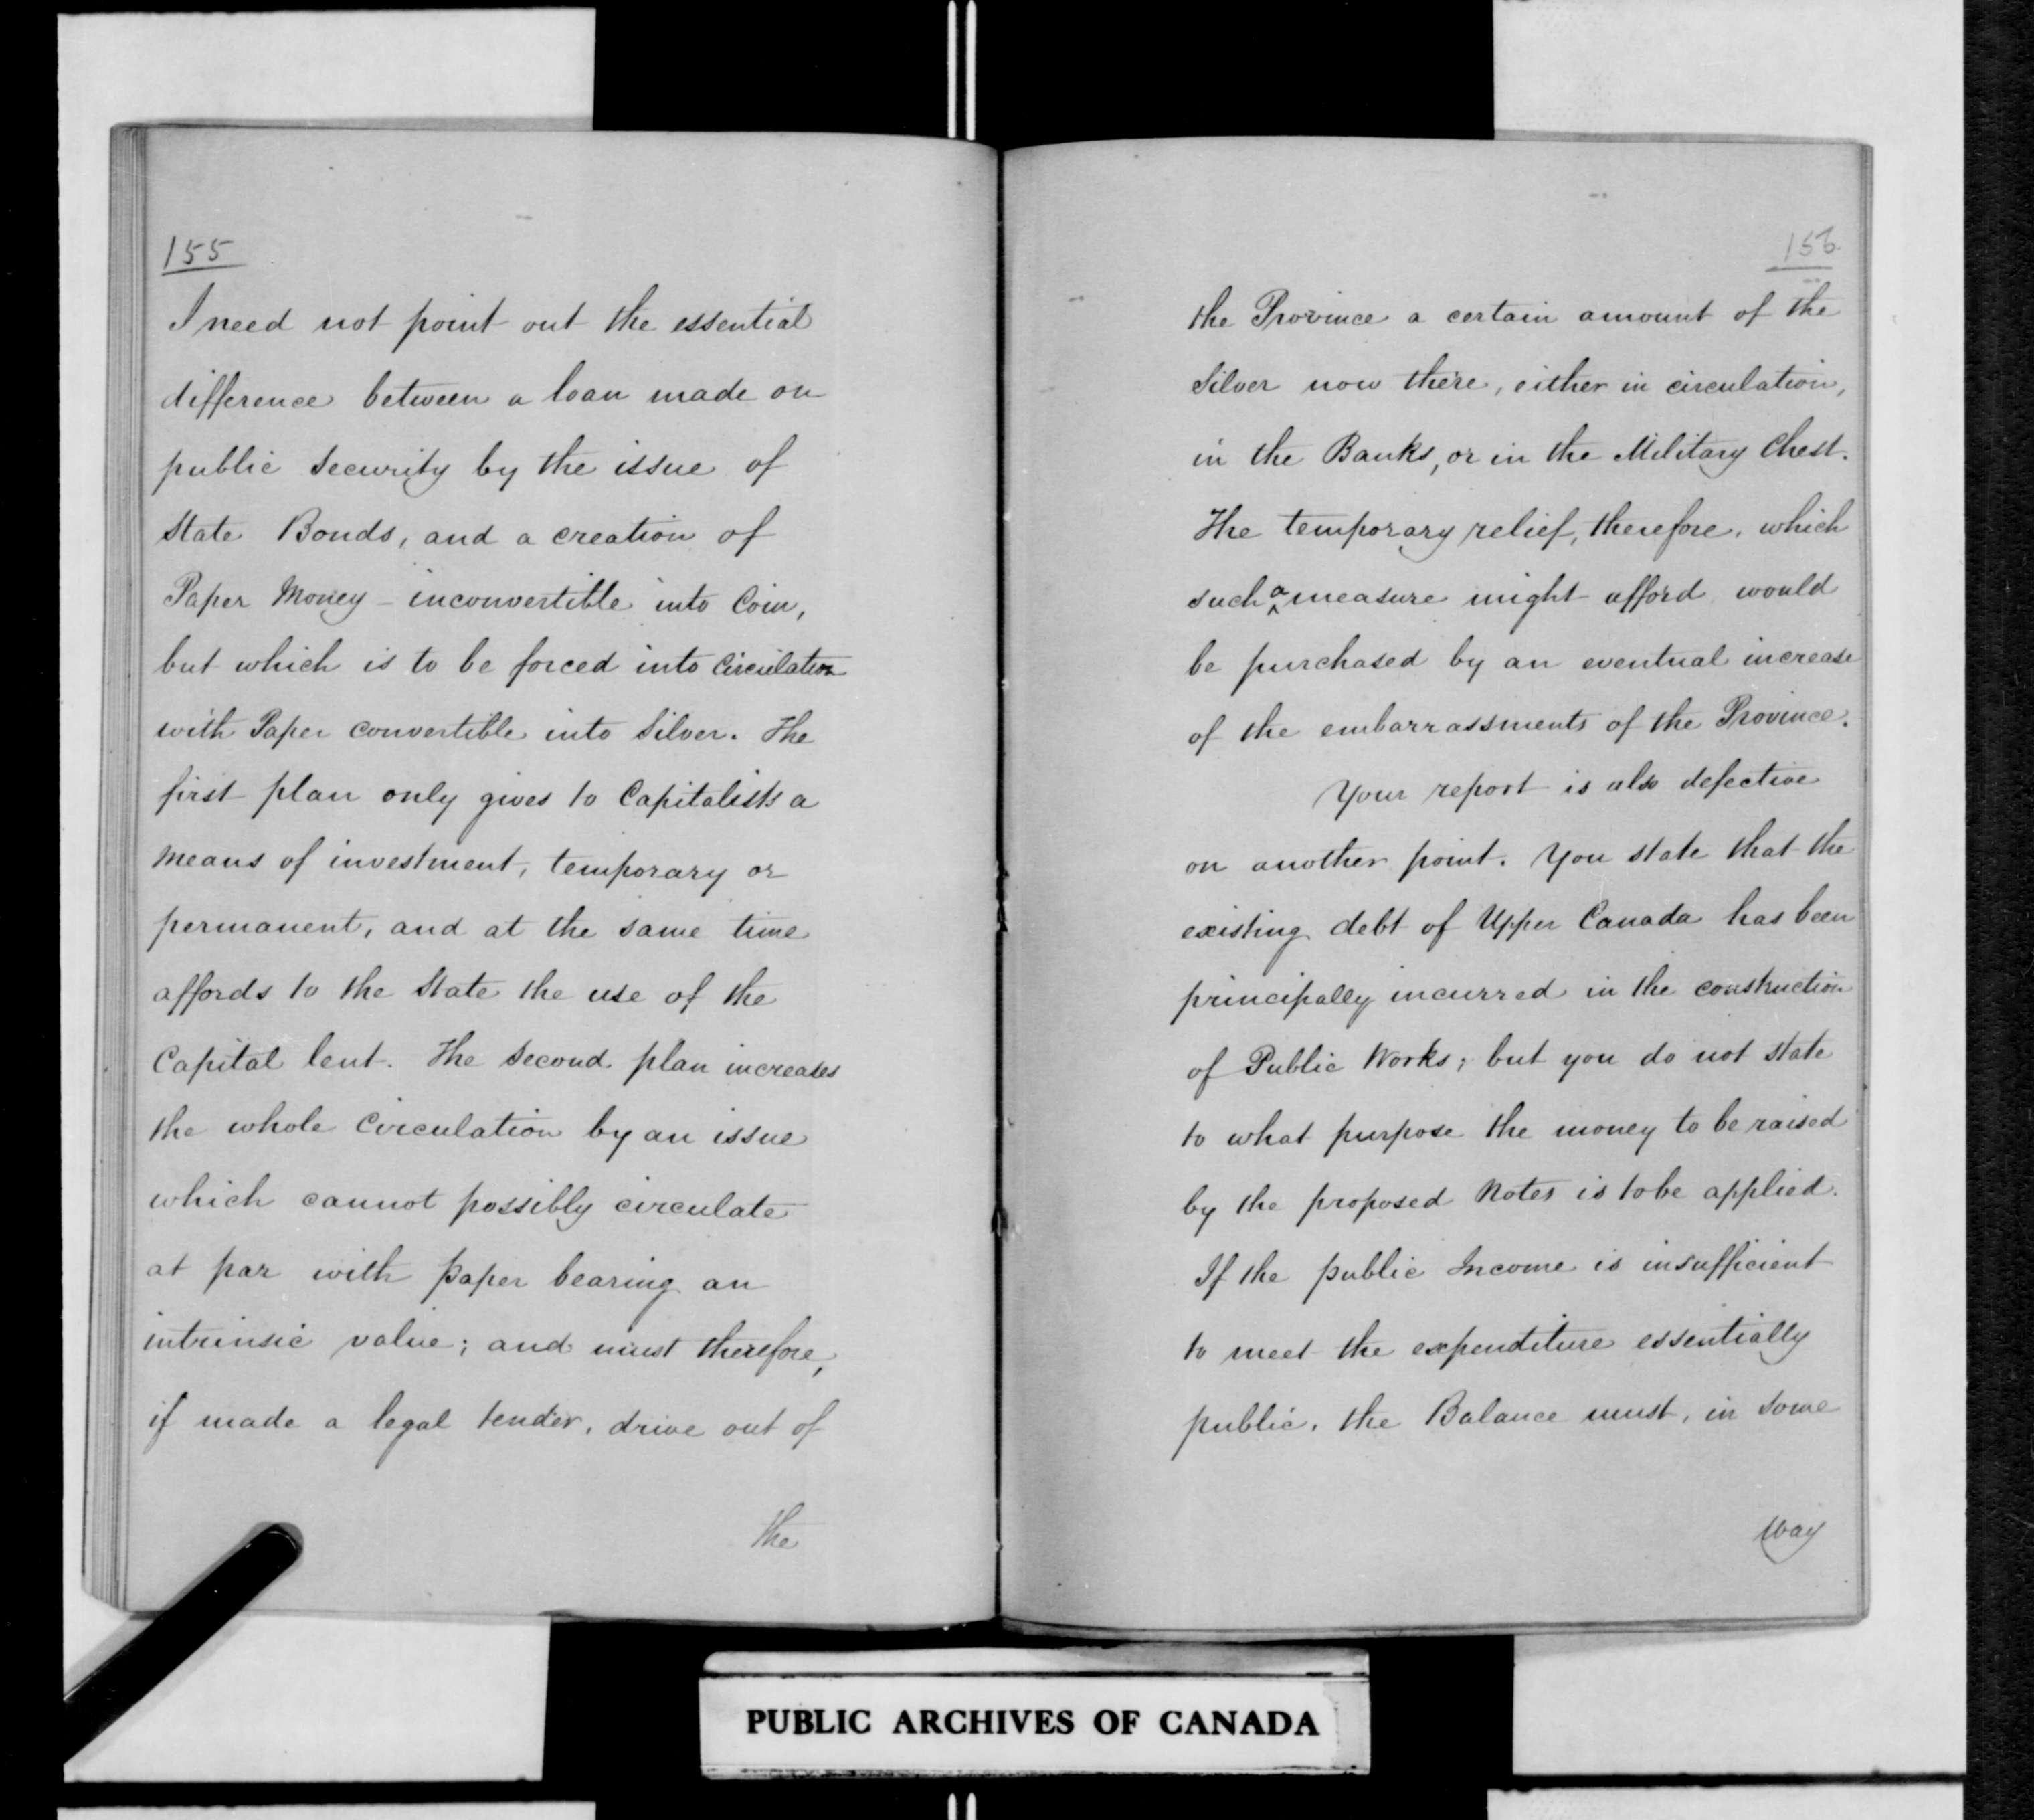 155
I need not point out the essential
difference between a loan made on
public Security by the issue of
State Bonds, and a creation of
Paper Money - inconvertible into Coin,
but which is to be forced into Circulation
with Paper convertible into Silver. The
first plan only gives to Capitalists a
means of investment, temporary or
permanent, and at the same time
affords to the State the use of the
Capital lent. The Second plan increases
the whole Circulation by an issue
which cannot possibly circulate
at par with paper bearing an
intrinsic value; and must therefore,
if made a legal tender, drive out of
the
156.
the Province a certain amount of the
Silver now there, either in circulation,
in the Banks, or in the Military Chest.
The temporary relief, therefore, which
such a measure might afford would
be purchased by an eventual increase
of the embarrassments of the Province.
Your report is also defective
on another point. You state that the
existing debt of Upper Canada has been
principally incurred in the construction
of Public Works; but you do not state
to what purpose the money to be raised
by the proposed Notes is to be applied.
If the public Income is insufficient
to meet the expenditure essentially
public, the Balance must, in some
way
PUBLIC ARCHIVES OF CANADA